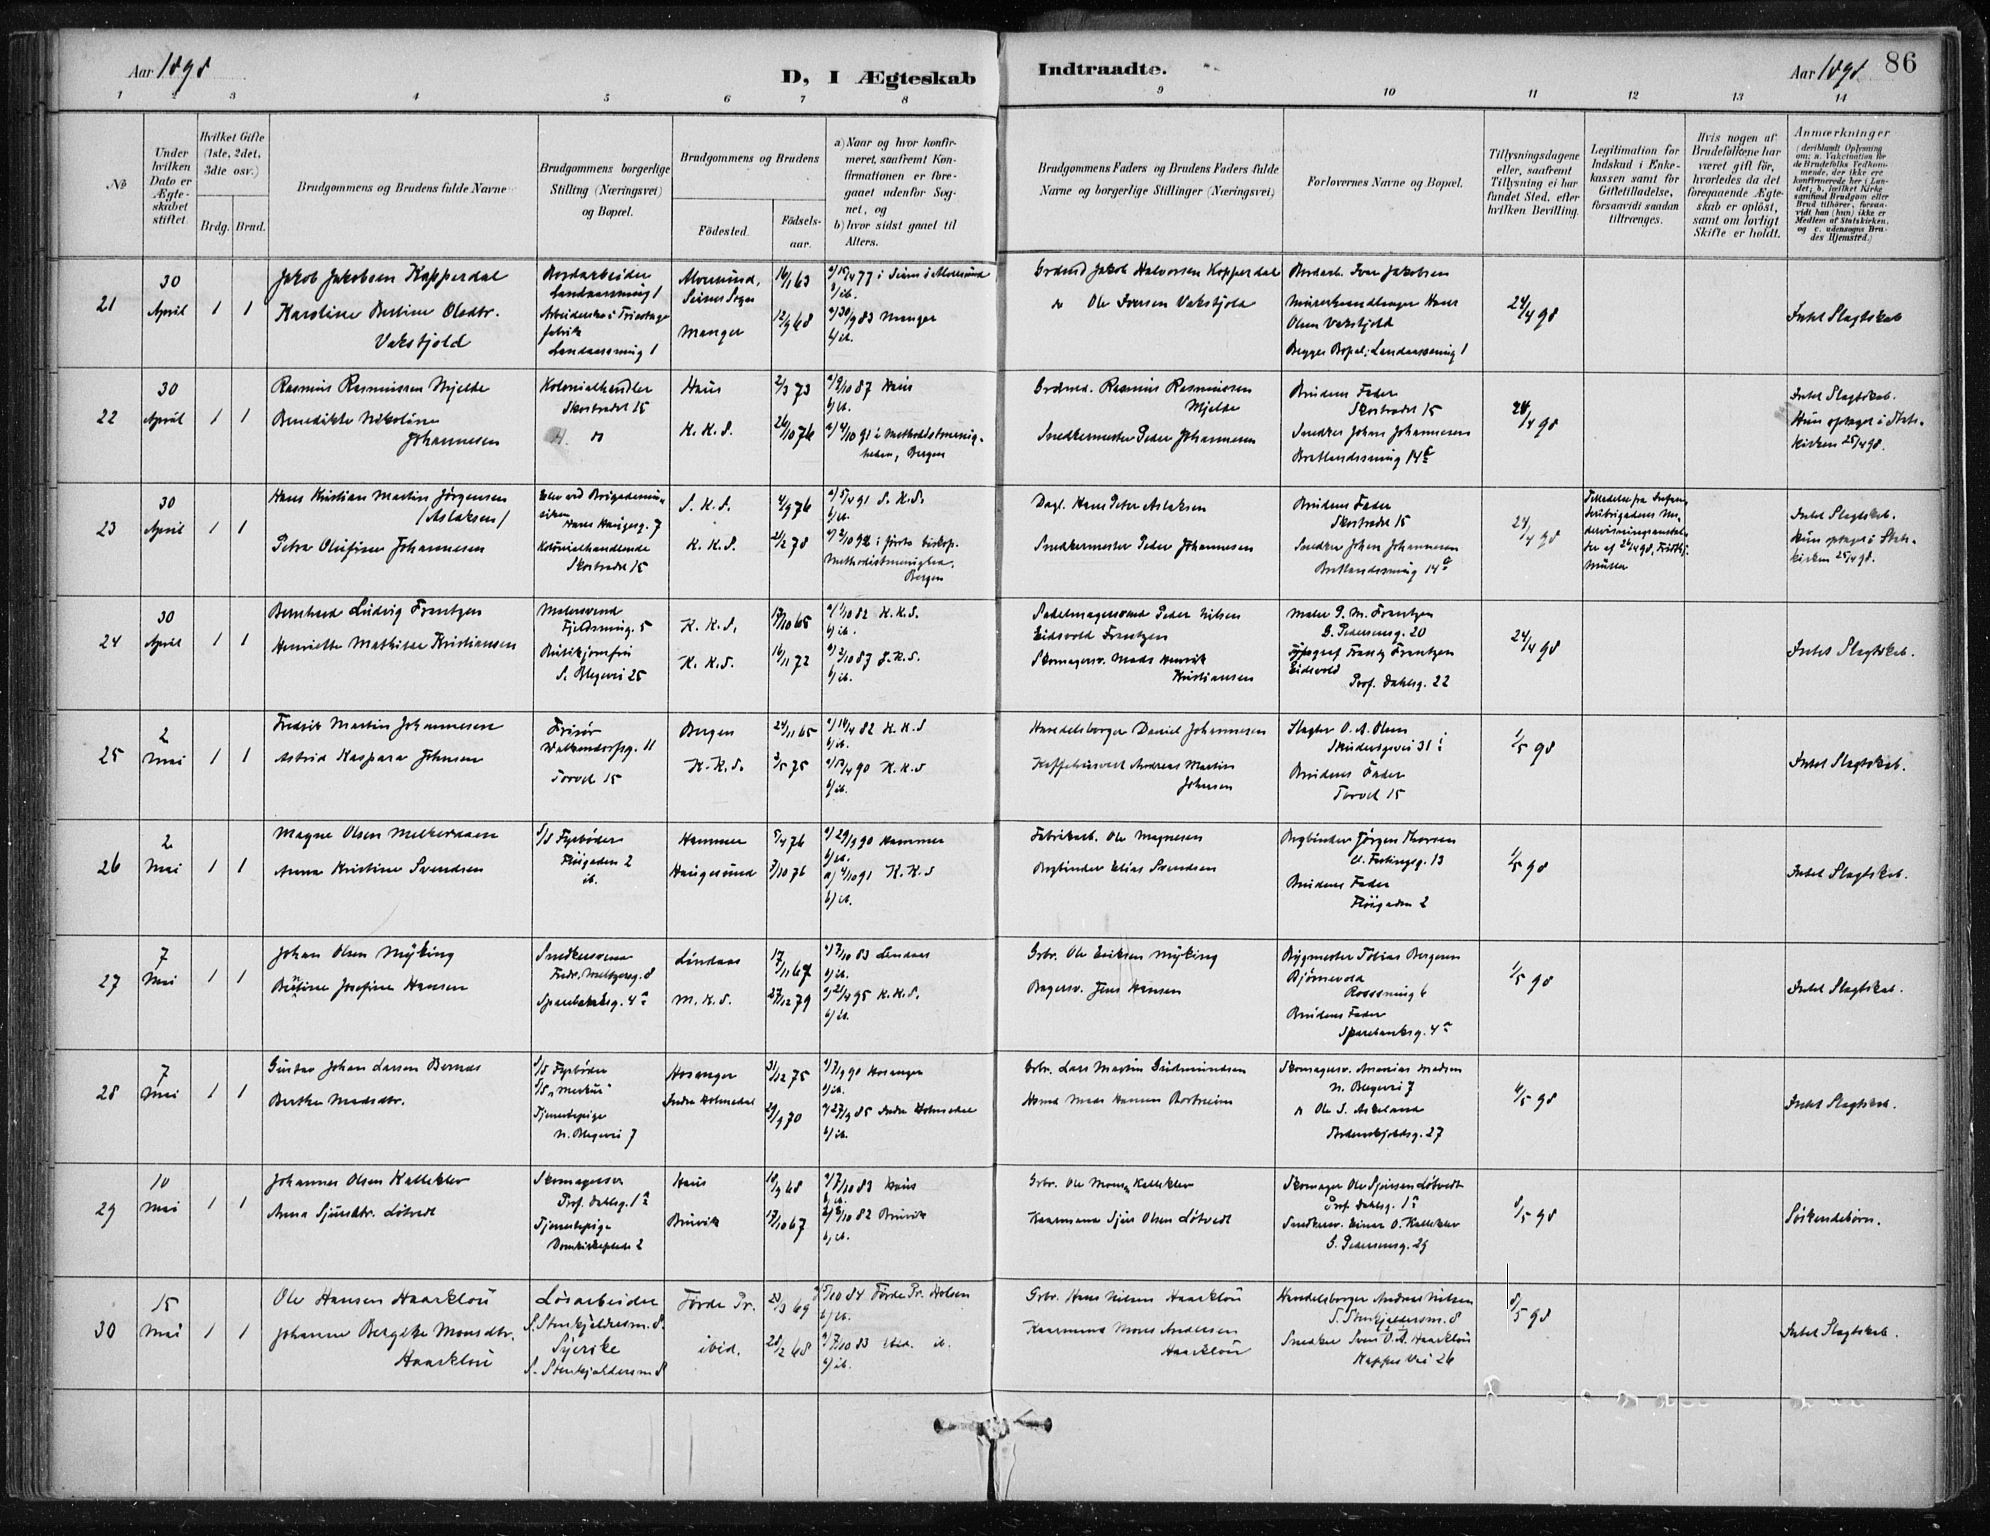 Aar 1898
D, I Ægteskab
Indtraadte.
Aar 1898
86
1 2 3 4 5 6 7 8 9 10 11 12 13 14
No
Under hvilken Dato er Ægteskabet stiftet.
Hvilket Gifte (1ste, 2det, 3die osv.)
Brdg. Brud.
Brudgommens og Brudens fulde Navne
Brudgommens borgerlige Stilling (Næringsvei) og Bopæl.
Brudgommens og Brudens
Fødested.
Fødselsaar.
a) Naar og hvor konfirmeret, saafremt Konfirmationen er foregaaet udenfor Sognet, og
b) hvor sidst gaaet til Alters.
Brudgommens Faders og Brudens Faders fulde Navne og borgerlige Stillinger (Næringsvei)
Forlovernes Navne og Bopæl.
Tillysningsdagene eller, saafremt Tillysning ei har fundet Sted, efter hvilken Bevilling.
Legitimation for Indskud i Enkekassen samt for Giftetilladelse, forsaavidt saadan tiltrænges.
Hvis nogen af Brudefolkene har været gift før, hvorledes da det foregaaende Ægteskab er opløst, samt om lovligt Skifte er holdt.
Anmærkninger
(deriblandt Oplysning om: a. Vakcination for de Brudefolks Vedkommende, der ikke ere konfirmerede her i Landet; b. hvilket Kirkesamfund Brudgom eller Brud tilhører, forsaavidt han (hun) ikke er Medlem af Statskirken, og c. udensogns Brudes Hjemsted.)
21
30 April
1 1
Jakob Jakobsen Kopperdal
Karoline Bertine Olsdtr.
Vakstjold
Landaassmug 1
Landaassmug 1
Manger
16/1 63
12/9 68
a/30/9 83 Manger
b/ ib.
Jakob Halvorsen Kopperdal
Ole Iversen Vakstjold
Iver Jakobsen
Olsen Vakstjold
Begges Bopæl: Landaassmug 1
24/4 98
Intet Slagtskab
22
30 April
1 1
Rasmus Rasmussen Mjelde
Benedikte Nikoline
Johannesen
Kolonialhandler
Skostrædet 15
Haus
K. K. S.
2/3 73
26/10 76
a/9/10 87 Haus
b/ ib.
a/4/10 91 i Methodistmenigheden, Bergen
Rasmus Rasmussen
Mjelde
Snedkermester Peder Johannesen
Brudens Fader
Skostrædet 15
Snedker Johan Johannesen
24/4 98
Intet Slagtskab.
Hun optaget i Statskirken 25/4 98.
23
30 April
1 1
Hans Kristian Martin Jørgensen
(Aslaksen)
Petra Olufine Johannesen
Hans Haugesg. 7
Kolonialhandlende
Skostrædet 15
S. K. S.
K. K. S.
4/9 76
21/2 78
a/5/4 91 S. K. S.
b/ ib.
Methodistmenighed,
Bergen
Dagl. Hans Peter Aslaksen
Snedkermester Peder Johannesen
Brudens Fader
Skostrædet 15
Snedker Johan Johannesen
24/4 98
Intet Slagtskab.
Hun optaget i Statskirken 25/4 98.
24
30 April
1 1
Bernhard Ludvig Frantzen
Henriette Mathilde Kristiansen
Malersvend
Fjeldsmug. 5
Butikjomfru
S. Blegevei 25
K. K. S.
K. K. S.
17/10 65
16/11 72
a/1/10 82 K. K. S.
b/ ib.
a/2/10 87
b/ ib.
Sadelmagersvend Peder Nilsen
Eidsvold Frantzen
Skomagersv. Mads Henrik
Kristiansen
Maler P. M. Frantzen
S. Pedersensg. 20
Typograf Frantz Frantzen
Eidsvold
Prof. Dahlsg. 22
24/4 98
Intet Slagtskab.
25
2 Mai
1 1
Fredrik Martin Johannesen
Astrid Kaspara Johnsen
Frisør
Walkendorfsg. 11
Torvet 15
Bergen
K. K. S.
24/11 65
3/5 75
a/16/4 82 K. K. S
b/ ib.
a/13/4 90 K. K. S
b/ ib.
Handelsborger Daniel Johannesen
Kaffehusvert Andreas Martin
Johnsen
Slagter O. A. Olsen
Brudens Fader
Torvet 15
1/5 98
Intet Slagtskab.
26
2 Mai
1 1
Magne Olsen Melkeraaen
Anna Kristine Svendsen
D/S Fyrbøder
Fløigaden 2
ib.
Hammer
Haugesund
5/4 76
7/10 76
a/29/9 90 Hammer
b/ ib.
a) 4/10 91 K. K. S
b) ib.
Fabrikarb. Ole Magnesen
Bogbinder Elias Svendsen
Bogbinder Jørgen Thorsen
Brudens Fader
Fløigaden 2
1/5 98
Intet Slagtskab.
27
7 Mai
1 1
Johan Olsen Myking
Josefine Hansen
Snedkersvend
Fredr. Meltzersg. 8
Sparebanksg. 4a
Lindaas
M. K. S.
17/11 67
27/12 79
a/7/10 83 Lindaas
b/ ib.
a/21/4 95 K. K. S.
b/ ib.
Grbr. Ole Eriksen Myking
Bagersv. Jens Hansen
Bygmester Tobias Bergesen
Bjørnevold
Brudens Fader
Sparebanksg. 4a
1/5 98
Intet Slagtskab.
28
7 Mai
1 1
Gustav Johan Larsen Bernes
Berthe Madsdtr.
D/S Fyrbøder
D/S "Merkur"
Tjenestepige
N. Blegevei 7
Hosanger
Indre Holmedal
31/12 75
29/9 70
a/7/9 90 Hosanger
b/ ib.
a/27/9 85 Indre Holmedal
b/ ib.
Grbr. Lars Martin Gudmundsen
Husmd Mads Hansen
Skomagersv. Ananias Madsen
N. Blegevei 7
Ole S. Askeland
4/5 98
Intet Slagtskab.
29
10 Mai
1 1
Johannes Olsen Kalleklev
Anna Sjursdtr. Løtvedt
Skomagersv.
Prof. Dahlsg. 1a
Tjenestepige
Domkirkeplads 2
Haus
Bruvik
18/9 68
17/10 67
a/7/10 83 Haus
b/ ib.
10 82 Bruvik
b/ ib.
Grbr. Ole Monsen Kalleklev
Kaarmand Sjur Olsen Løtvedt
Skomager Ole Sjursen Løtvedt
Prof. Dahlsg. 1a
Snedkersv. Einar O. Kalleklev
S. Pedersensg. 29
8/5 98
Søskendebørn.
30
15 Mai
1 1
Ole Hansen Haarklou
Johanne Bergitte Monsdtr.
Haarklou
Løsarbeider
S. Stenkjeldersm. 8.
Syerske
S. Stenkjeldersm 8
Førde Pr.
ibid.
23/3 69
28/2 68
a/5/10 84 Førde Pr. Holsen
b/ ib.
a/7/10 83 ibid. ib.
b/ ib.
Grbr. Hans Nilsen Haarklou
Kaarmand Mons Andersen
Haarklou
Handelsborger Andreas Nilsen
S. Stenkjeldersm. 8
Snedker Sven O. A. Haarklou
Kappes Vei 26
8/5 98
Intet Slagtskab.